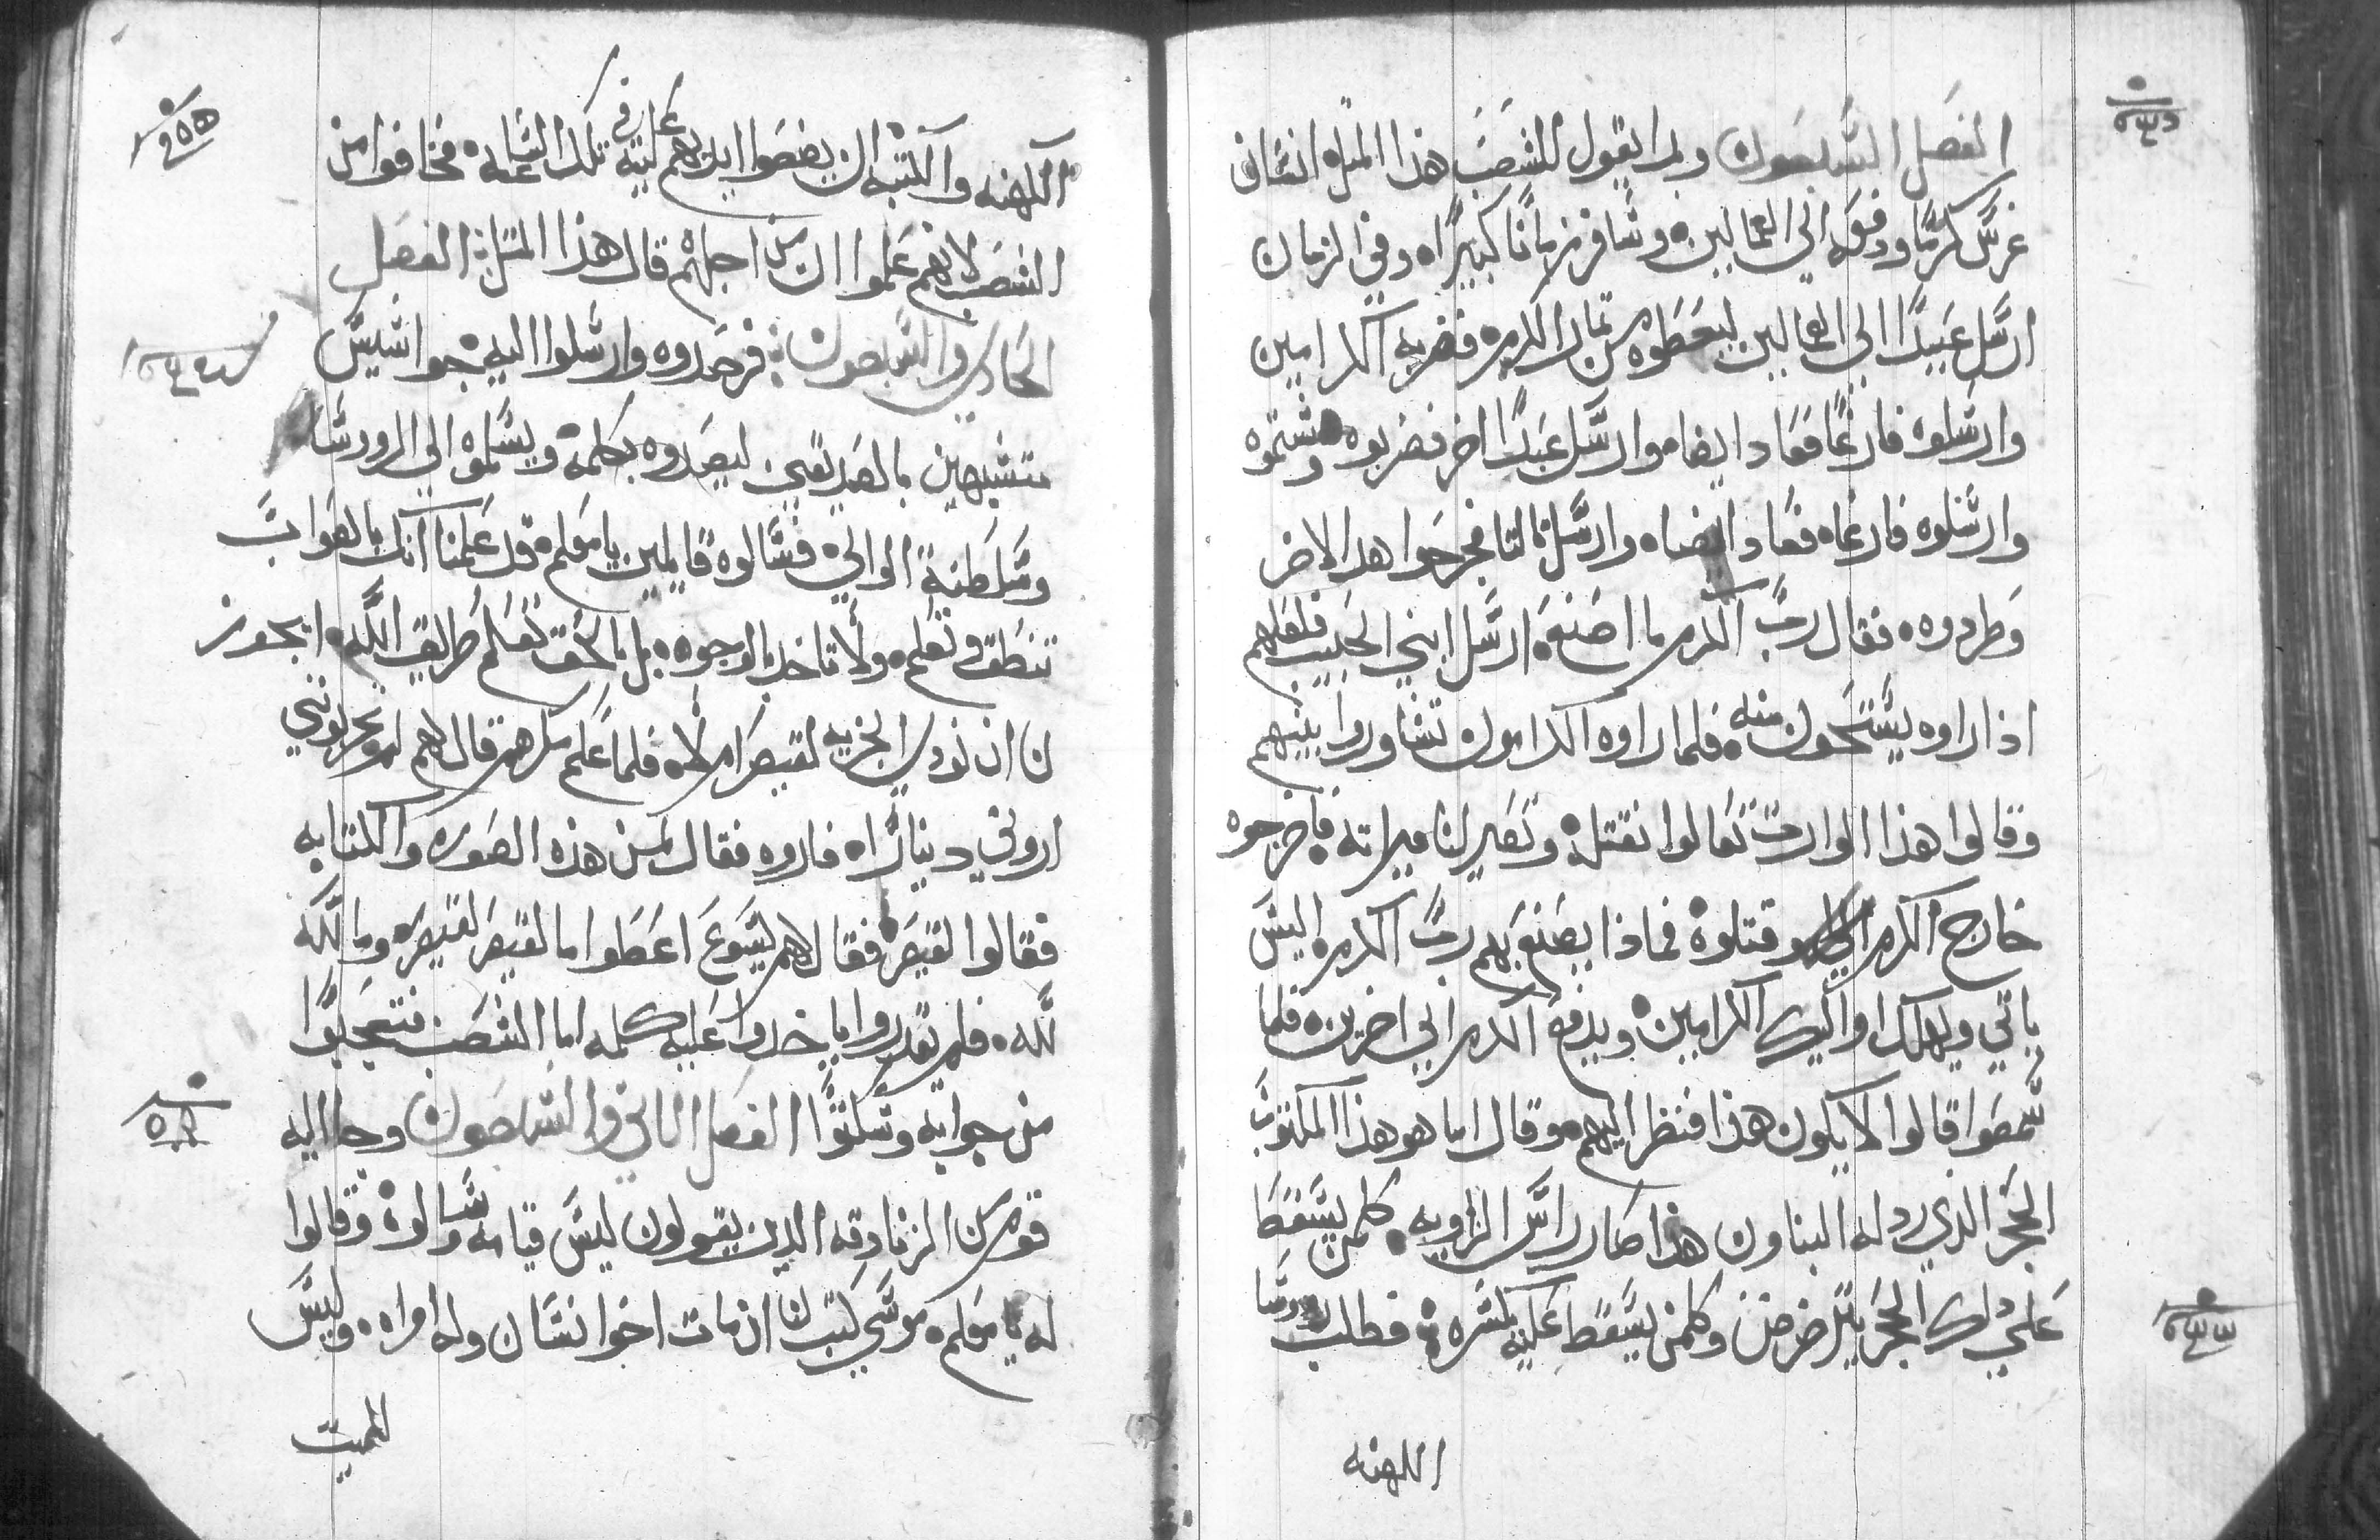 الفصل السبعون وبدا يقول للشعب هذا المثل انسان
غرس كرمًا ودفعه الي الفعالين وسافر زمانًا كبيرًا وفي الزمان
ارسل عبيدًا الي الفعالين ليعطوه من ثمار الكرم فضربه الكرامين
وارسلوه فارغًا فعاد ايضا وارسل عبدًا اخر فضربوه وشتموه
وارسلوه فارغا فعاد ايضا وارسل ثالثا فجرحوا هدا الاخر
وطردوه فقال رب الكرم ما اصنع ارسل ابني الحبيب فلعلهم
اذا راوه يستحون منه فلما راوه الكرامون تشاوروا بينهم
وقالوا هذا الوارث تعالوا نقتله وتصير لنا ميراثه فاخرجوه
خارج الكرم وقتلوه فماذا يصنع بهم رب الكرم اليس
ياتي ويهلك اوليك الكرامين ويدفع الكرم الي اخرين فلما
سمعوا قالوا لا يكون هذا فنظر اليهم وقال اما هو هذا المكتوب
الحجر الذي ردله البناون هذا صار راس الزاويه كلمن يسقط
علي ذلك الحجر يترضرض وكلمن يسقط عليه يكسره فطلب روسا
الكهنه
الكهنه والكتبه ان يضعوا ايديهم عليه في تلك الساعه فخافوا من
الشعب لانهم علموا ان من اجلهم قال هذا المثل الفصل
الحادي والسبعون فرصدوه وارسلوا اليه جواسيس
متشبهين بالصديقين ليصدوه بكلمة ويسلموه الي الرووسا
وسلطنة الوالي فسالوه قايلين يا معلم قد علمنا انك بالصواب
تنطق وتعلم ولا تاخد بالوجوه بل بالحق تعلم طريق الله ايجوز
لنا ان نودي الجزيه لقيصر ام لا فلما علم مكرهم قال لهم لم تجربوني
اروني دينارًا فاروه فقال لمن هذه الصوره والكتابه
فقالوا لقيصر فقال لهم يسوع اعطوا ما لقيصر لقيصر وما لله
لله فلم يقدروا ياخدوا عليه كلمه اما الشعب فتعجبوا
من جوابه وسكتوا الفصل الثاني والسبعون وجا اليه
قوم من الزنادقه الدين يقولون ليس قيامه وسالوه وقالوا
له يا معلم موسي كتب لنا ان مات اخوا نسان وله امراه وليس
للميت